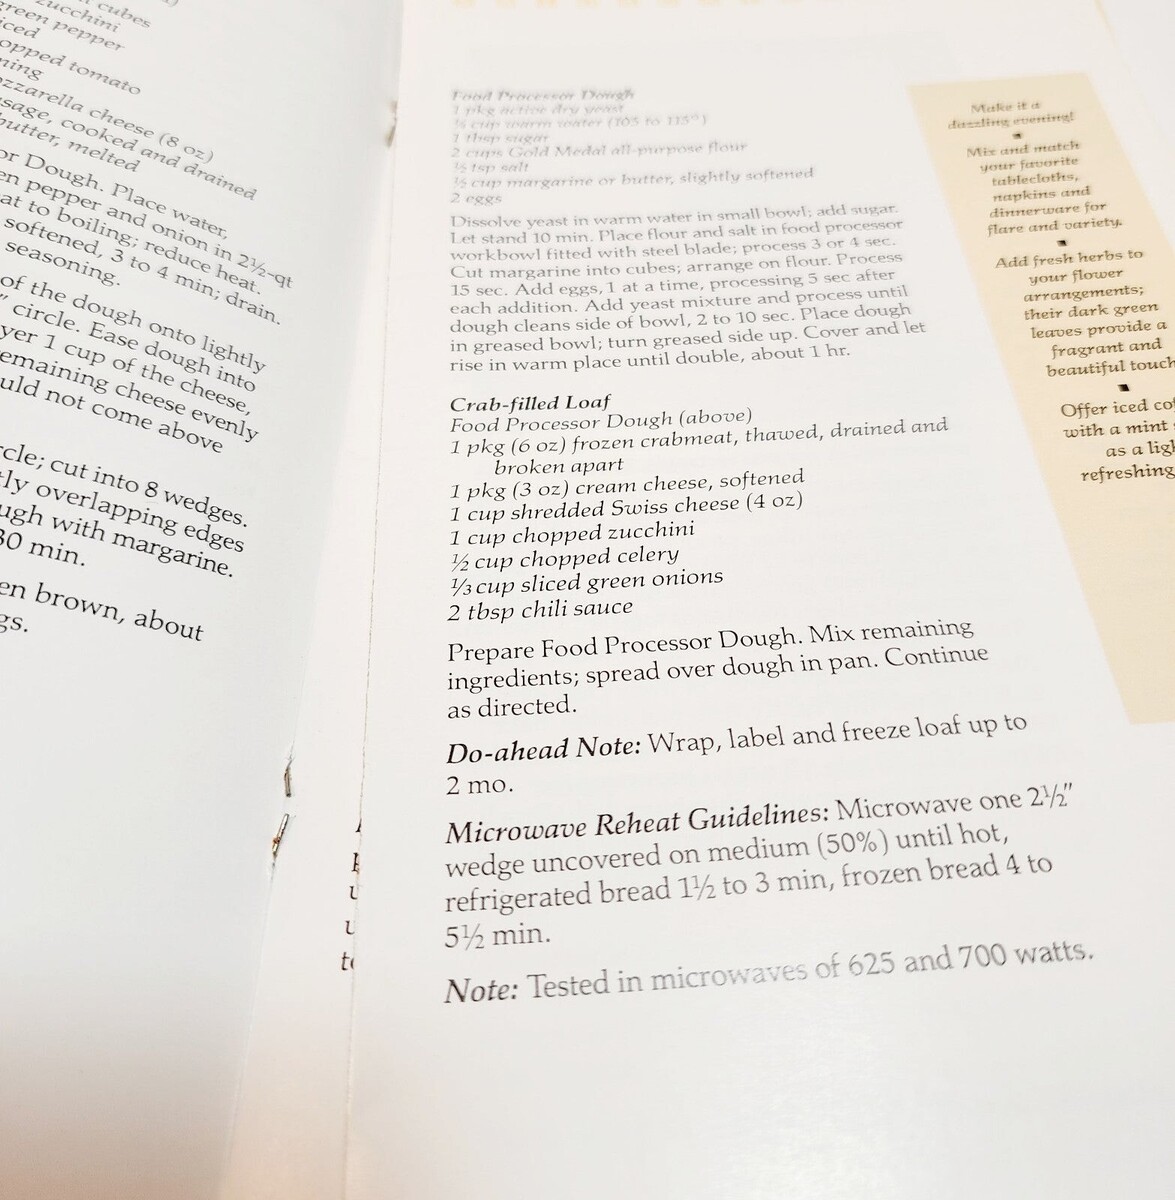 cubes
zucchini
green pepper
opped tomato
ning
zzarella cheese (8 oz)
sage, cooked and drained
butter, melted
or Dough. Place water,
en pepper and onion in 2½-qt
at to boiling; reduce heat.
softened, 3 to 4 min; drain.
seasoning.
of the dough onto lightly
" circle. Ease dough into
yer 1 cup of the cheese,
emaining cheese evenly
uld not come above
rcle; cut into 8 wedges.
tly overlapping edges
ugh with margarine.
30 min.
en brown, about
gs.
Food Processor Dough
1 pkg active dry yeast
cup warm water (105 to 115°)
1 tbsp sugar
2 cups Gold Medal all-purpose flour
½ tsp salt
½ cup margarine or butter, slightly softened
2 eggs
Dissolve yeast in warm water in small bowl; add sugar.
Let stand 10 min. Place flour and salt in food processor
workbowl fitted with steel blade; process 3 or 4 sec.
Cut margarine into cubes; arrange on flour. Process
15 sec. Add eggs, 1 at a time, processing 5 sec after
each addition. Add yeast mixture and process until
dough cleans side of bowl, 2 to 10 sec. Place dough
in greased bowl; turn greased side up. Cover and let
rise in warm place until double, about 1 hr.
Crab-filled Loaf
Food Processor Dough (above)
1 pkg (6 oz) frozen crabmeat, thawed, drained and
broken apart
1 pkg (3 oz) cream cheese, softened
1 cup shredded Swiss cheese (4 oz)
1 cup chopped zucchini
½ cup chopped celery
⅓ cup sliced green onions
2 tbsp chili sauce
Prepare Food Processor Dough. Mix remaining
ingredients; spread over dough in pan. Continue
as directed.
Do-ahead Note: Wrap, label and freeze loaf up to
2 mo.
Microwave Reheat Guidelines: Microwave one 2½"
wedge uncovered on medium (50%) until hot,
refrigerated bread 1½ to 3 min, frozen bread 4 to
5½ min.
Note: Tested in microwaves of 625 and 700 watts.
Make it a
dazzling evening!
Mix and match
your favorite
tablecloths,
napkins and
dinnerware for
flare and variety.
Add fresh herbs to
your flower
arrangements;
their dark green
leaves provide a
fragrant and
beautiful touch
Offer iced co
with a mint
as a lig
refreshing